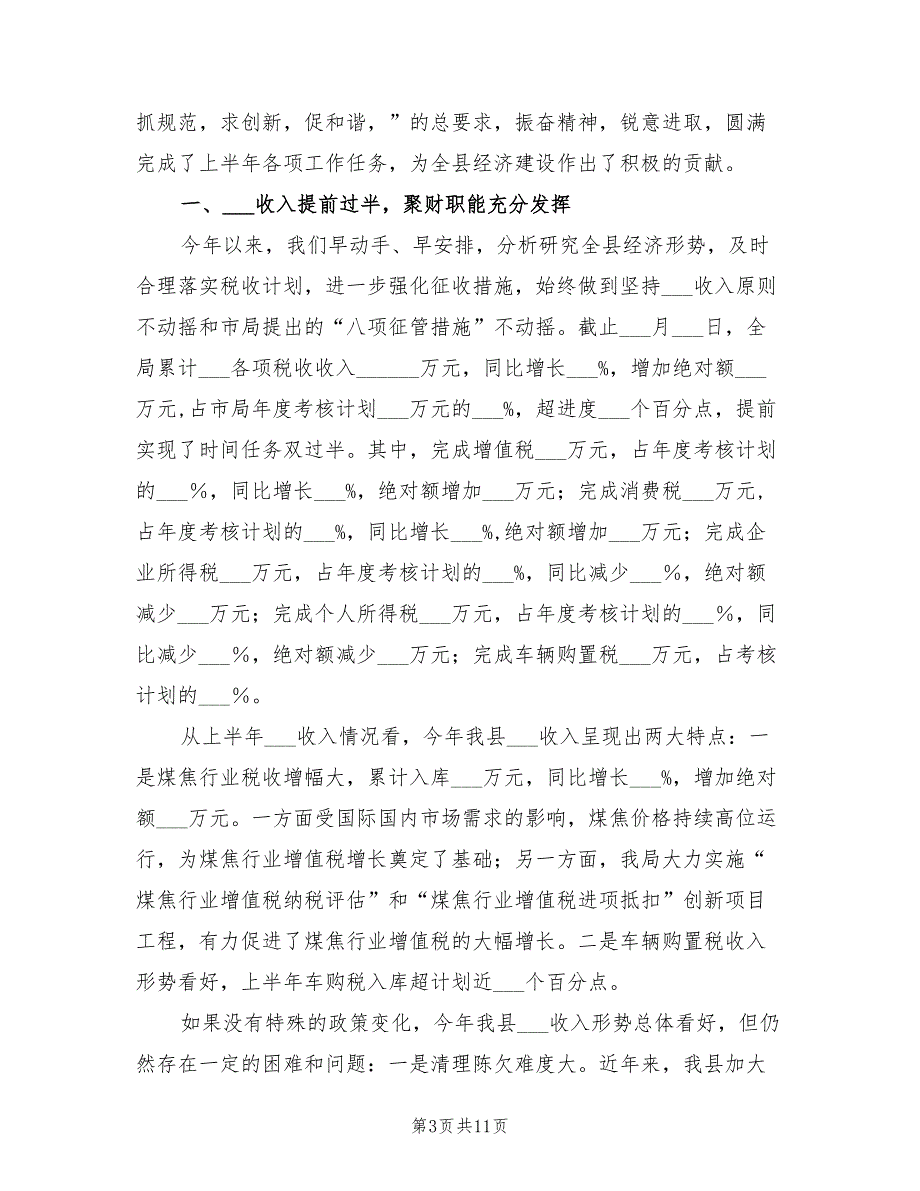 抓规范，求创新，促和谐，”的总要求，振奋精神，锐意进取，圆满
完成了上半年各项工作任务，为全县经济建设作出了积极的贡献。
一、___收入提前过半，聚财职能充分发挥
今年以来，我们早动手、早安排，分析研究全县经济形势，及时
合理落实税收计划，进一步强化征收措施，始终做到坚持___收入原则
不动摇和市局提出的“八项征管措施”不动摇。截止___月___日，全
局累计___各项税收收入______万元，同比增长___%，增加绝对额___
万元,占市局年度考核计划___万元的___%，超进度___个百分点，提前
实现了时间任务双过半。其中，完成增值税___万元，占年度考核计划
的___％，同比增长___%，绝对额增加___万元；完成消费税___万元，
占年度考核计划的___%，同比增长___%,绝对额增加___万元；完成企
业所得税___万元，占年度考核计划的___%，同比减少___％，绝对额
减少___万元；完成个人所得税___万元，占年度考核计划的___％，同
比减少___％，绝对额减少___万元；完成车辆购置税___万元，占考核
计划的___％。
从上半年___收入情况看，今年我县___收入呈现出两大特点：一
是煤焦行业税收增幅大，累计入库___万元，同比增长___%，增加绝对
额___万元。一方面受国际国内市场需求的影响，煤焦价格持续高位运
行，为煤焦行业增值税增长奠定了基础；另一方面，我局大力实施“
煤焦行业增值税纳税评估”和“煤焦行业增值税进项抵扣”创新项目
工程，有力促进了煤焦行业增值税的大幅增长。二是车辆购置税收入
形势看好，上半年车购税入库超计划近___个百分点。
如果没有特殊的政策变化，今年我县___收入形势总体看好，但仍
然存在一定的困难和问题：一是清理陈欠难度大。近年来，我县加大
第3页共11页